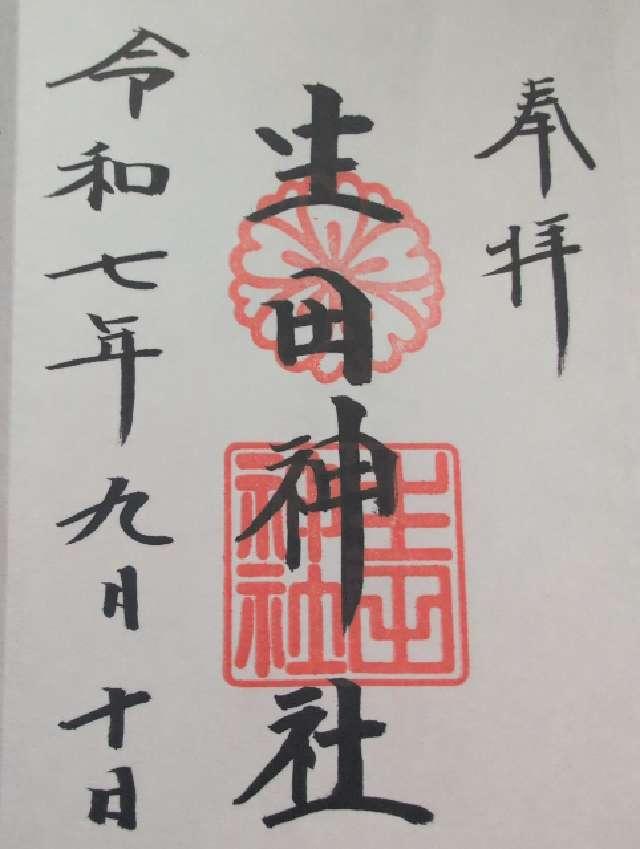 奉拝
生田神社
生田神社
令和七年九月十日